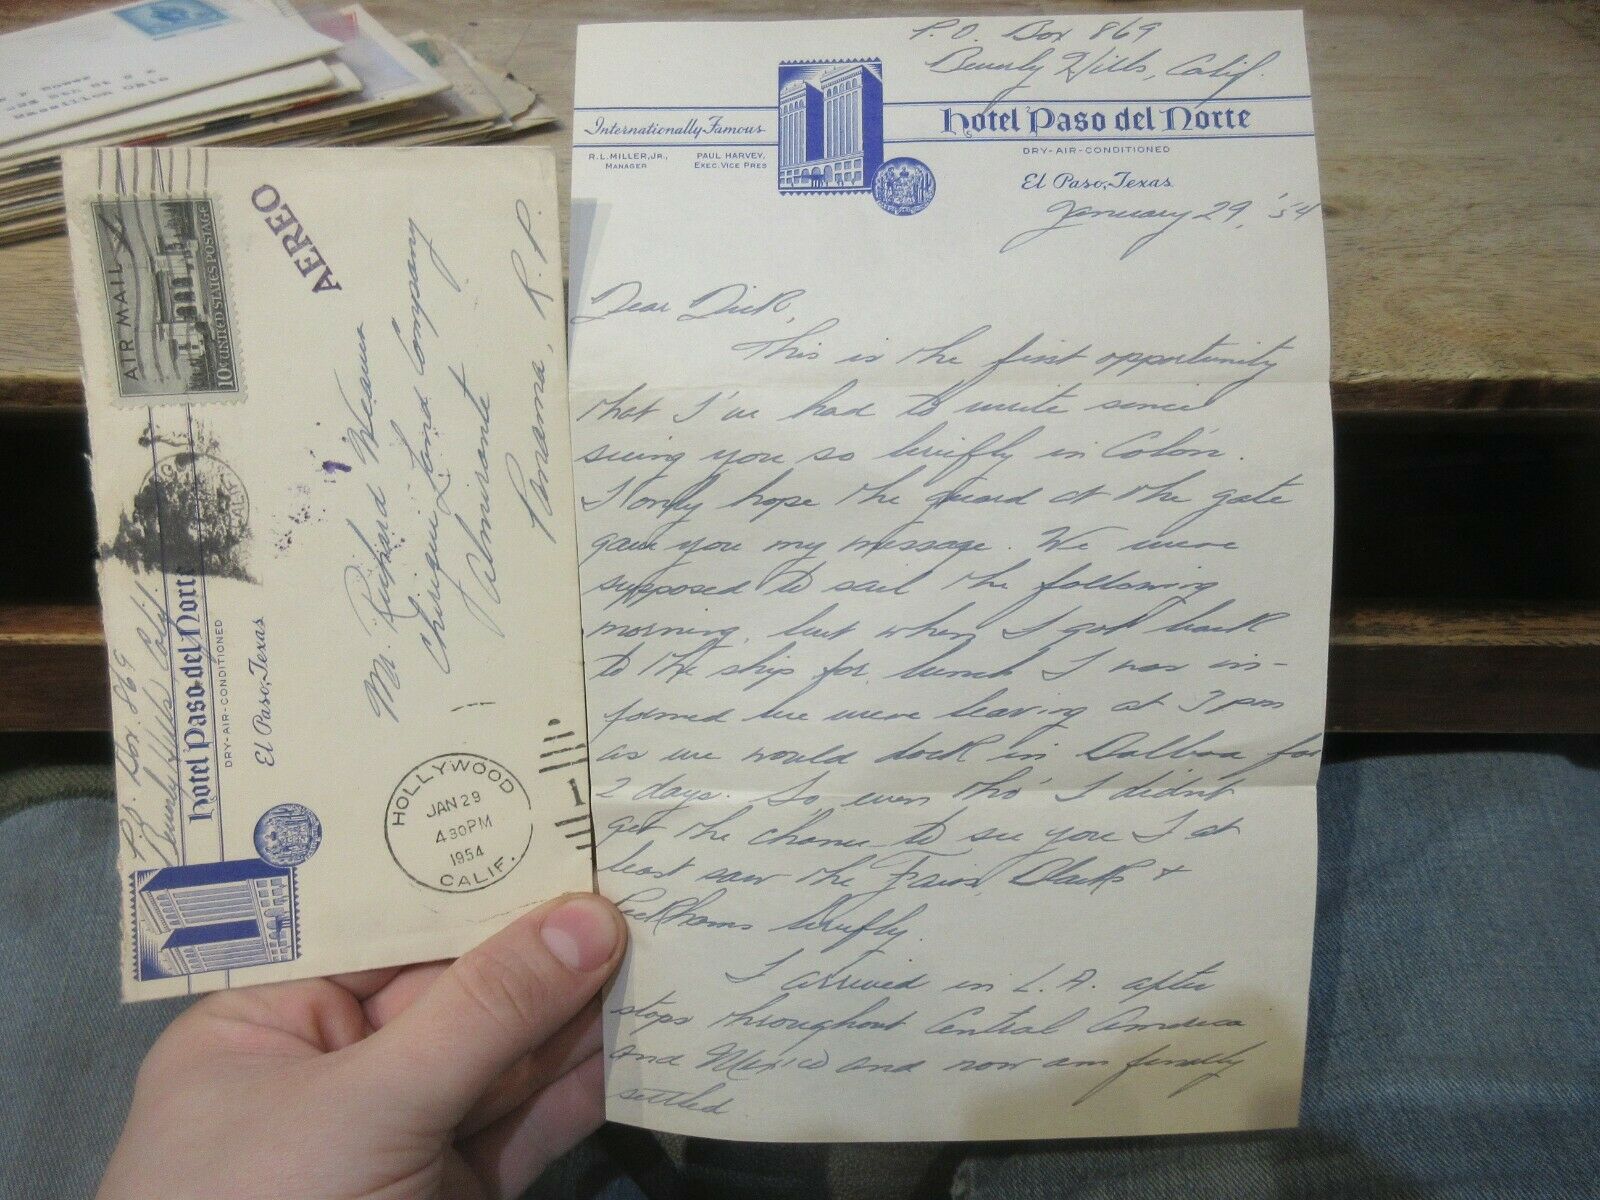 AIR MAIL
10¢ UNITED STATES POSTAGE
AEREO
P.O. Box 869
Beverly Hills Calif.
Hotel Paso del Norte
DRY-AIR-CONDITIONED
El Paso, Texas
Mr. Richard
Chiriqui Land Company
Almirante
Panama, R.P.
HOLLYWOOD
JAN 29
4 30 PM
1954
CALIF.
P.O. Box 869
Beverly Hills, Calif.
Internationally Famous
R.L. MILLER, JR.,
MANAGER
PAUL HARVEY,
EXEC. VICE PRES
Hotel Paso del Norte
DRY-AIR-CONDITIONED
El Paso, Texas
January 29, '54
Dear Dick,
This is the first opportunity
that I've had to write since
seeing you so briefly in Colón.
I only hope the guard at the gate
gave you my message. We were
supposed to sail the following
morning, but when I got back
to the ship for lunch I was in-
formed we were leaving at 3 pm
as we would dock in Balboa for
2 days. So, even tho' I didn't
get the chance to see you I at
least saw the Blacks &
Peckhams briefly.
I arrived in L.A. after
stops throughout Central America
and Mexico and now am finally
settled.